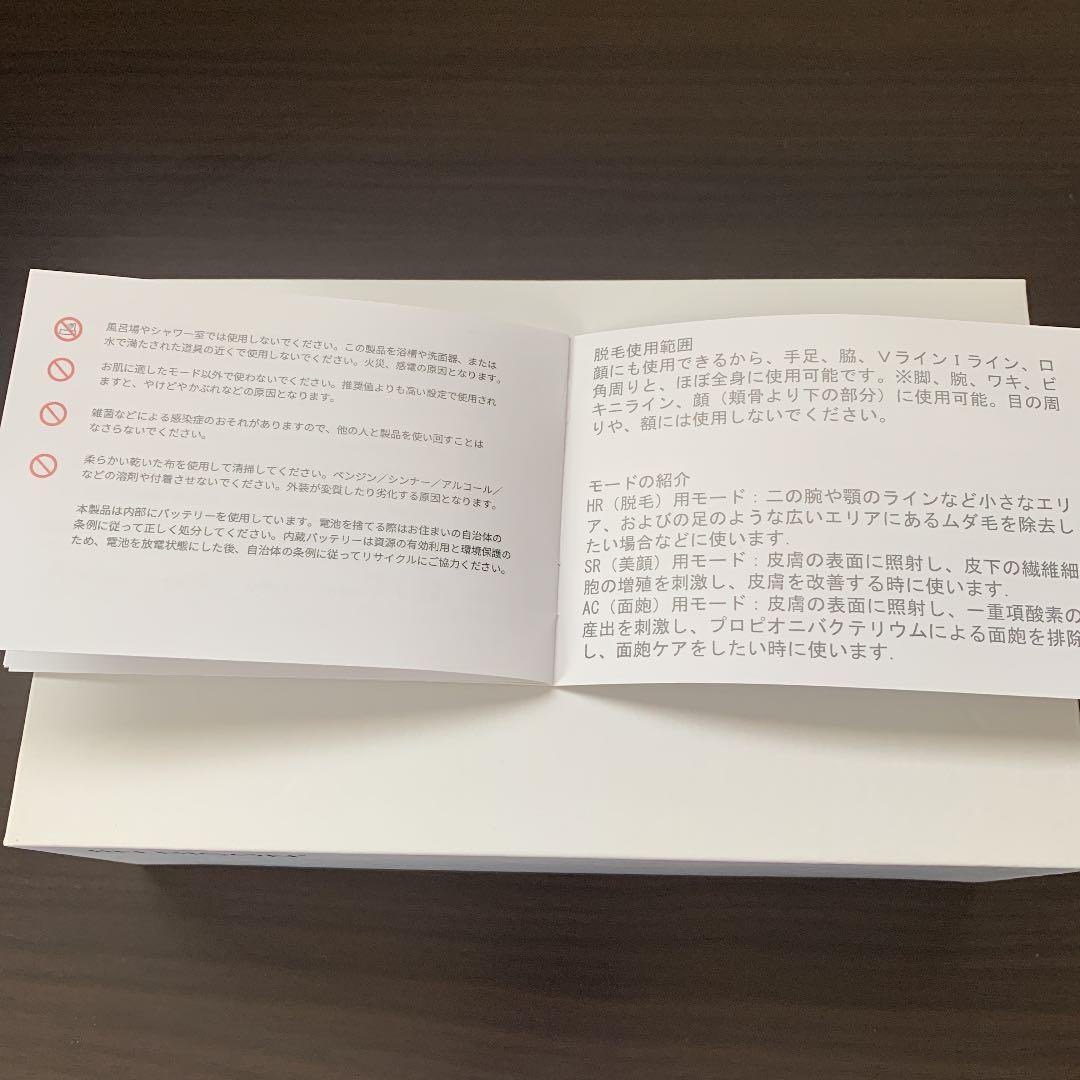 風呂場やシャワー室では使用しないでください。この製品を浴槽や洗面器、または
水で満たされた道具の近くで使用しないでください。火災、感電の原因となります。
お肌に適したモード以外で使わないでください。推奨値よりも高い設定で使用され
ますと、やけどやかぶれなどの原因となります。
雑菌などによる感染症のおそれがありますので、他の人と製品を使い回すことは
なさらないでください。
柔らかい乾いた布を使用して清掃してください。ベンジン／シンナー／アルコール／
などの溶剤や付着させないでください。外装が変質したり劣化する原因となります。
本製品は内部にバッテリーを使用しています。電池を捨てる際はお住まいの自治体の
条例に従って正しく処分してください。内蔵バッテリーは資源の有効利用と環境保護の
ため、電池を放電状態にした後、自治体の条例に従ってリサイクルにご協力ください。
脱毛使用範囲
顔にも使用できるから、手足、脇、VラインIライン、口
角周りと、ほぼ全身に使用可能です。※脚、腕、ワキ、ビ
キニライン、顔（頬骨より下の部分）に使用可能。目の周
りや、額には使用しないでください。
モードの紹介
HR（脱毛）用モード：二の腕や顎のラインなど小さなエリ
ア、およびの足のような広いエリアにあるムダ毛を除去し
たい場合などに使います.
SR（美顔）用モード：皮膚の表面に照射し、皮下の繊維細
胞の増殖を刺激し、皮膚を改善する時に使います.
AC（面皰）用モード：皮膚の表面に照射し、一重項酸素の
産出を刺激し、プロピオニバクテリウムによる面皰を排除
し、面皰ケアをしたい時に使います.